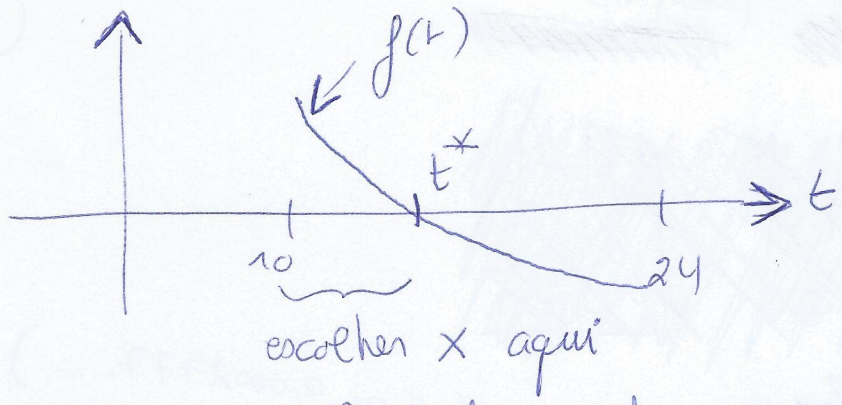 f(t)
t*
t
10
24
escolher x aqui